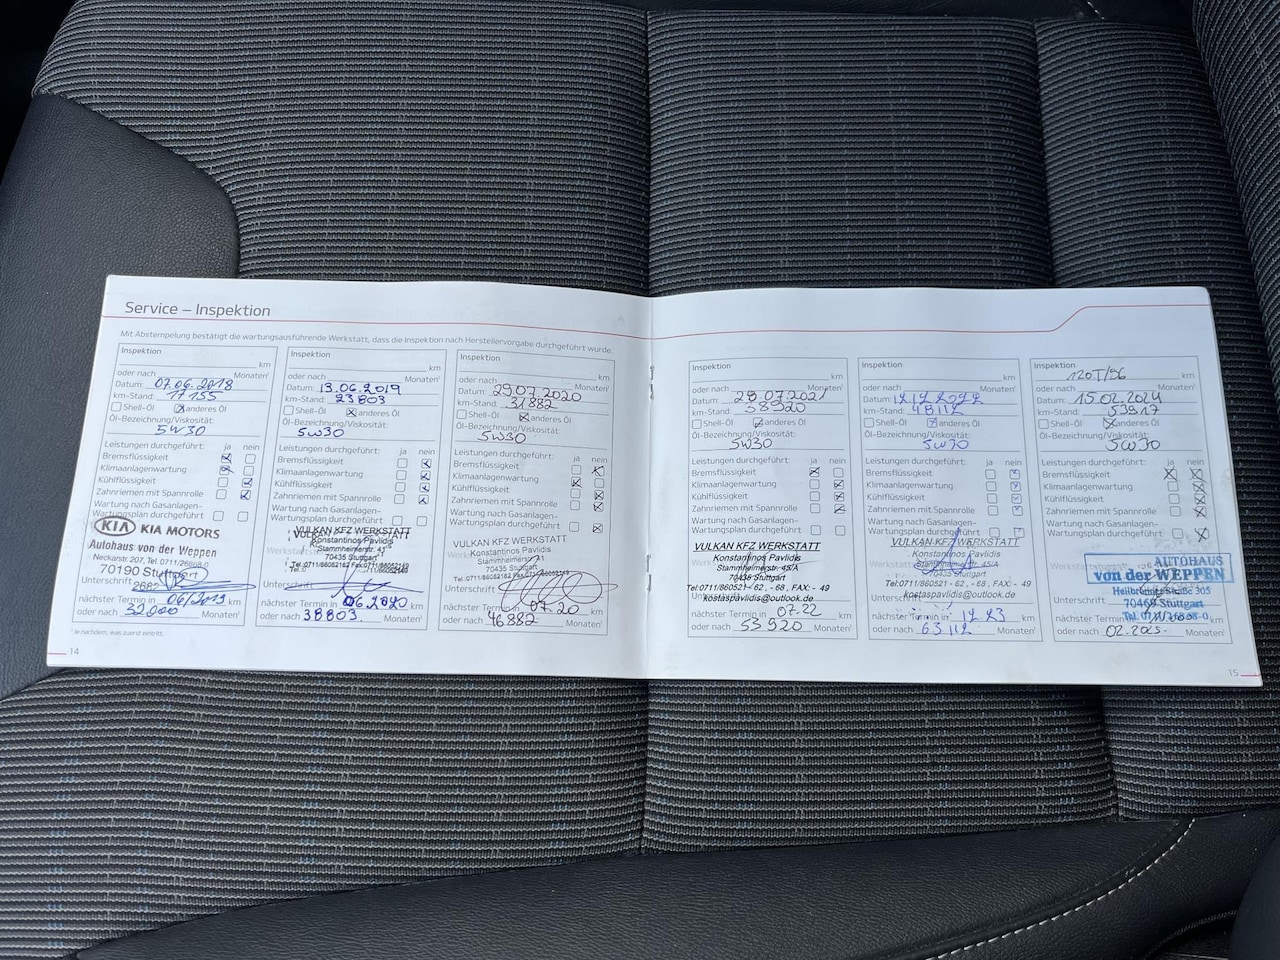 Service – Inspektion
Mit Abstempelung bestätigt die wartungsausführende Werkstatt, dass die Inspektion nach Herstellervorgabe durchgeführt wurde.
Inspektion
km
oder nach Monaten¹
Datum: 07.06.2018
km-Stand: 17155
Shell-Öl anderes Öl
Öl-Bezeichnung/Viskosität:
5W30
Leistungen durchgeführt: ja nein
Bremsflüssigkeit
Klimaanlagenwartung
Kühlflüssigkeit
Zahnriemen mit Spannrolle
Wartung nach Gasanlagen-
Wartungsplan durchgeführt
KIA KIA MOTORS
Autohaus von der Weppen
Neckarstr. 207, Tel. 0711/
70190 Stuttgart
Unterschrift
nächster Termin in 06/2019 km
oder nach 32000 Monaten¹
Inspektion
km
oder nach Monaten¹
Datum: 13.06.2019
km-Stand: 23803
Shell-Öl anderes Öl
Öl-Bezeichnung/Viskosität:
5W30
Leistungen durchgeführt: ja nein
Bremsflüssigkeit
Klimaanlagenwartung
Kühlflüssigkeit
Zahnriemen mit Spannrolle
Wartung nach Gasanlagen-
Wartungsplan durchgeführt
VULKAN KFZ WERKSTATT
Konstantinos Pavlidis
Stammheimerstr. 41
70435 Stuttgart
Unterschrift
nächster Termin in 06.2020 km
oder nach 38803. Monaten¹
Inspektion
km
oder nach Monaten¹
Datum: 29.07.2020
km-Stand: 31882
Shell-Öl anderes Öl
Öl-Bezeichnung/Viskosität:
5W30
Leistungen durchgeführt: ja nein
Bremsflüssigkeit
Klimaanlagenwartung
Kühlflüssigkeit
Zahnriemen mit Spannrolle
Wartung nach Gasanlagen-
Wartungsplan durchgeführt
VULKAN KFZ WERKSTATT
Konstantinos Pavlidis
Stammheimerstr. 41
70435 Stuttgart
Unterschrift
nächster Termin in 07.20 km
oder nach 46882 Monaten¹
¹ Je nachdem, was zuerst eintritt.
14
Inspektion
km
oder nach Monaten¹
Datum: 29.07.2021
km-Stand: 38920
Shell-Öl anderes Öl
Öl-Bezeichnung/Viskosität:
5W30
Leistungen durchgeführt: ja nein
Bremsflüssigkeit
Klimaanlagenwartung
Kühlflüssigkeit
Zahnriemen mit Spannrolle
Wartung nach Gasanlagen-
Wartungsplan durchgeführt
VULKAN KFZ WERKSTATT
Konstantinos Pavlidis
Stammheimerstr. 45/A
70435 Stuttgart
Tel:0711/860521 - 62, - 68, FAX: - 49
kostaspavlidis@outlook.de
nächster Termin in 07.22 km
oder nach 53920 Monaten¹
Inspektion
km
oder nach Monaten¹
Datum: 12.12.2022
km-Stand: 48112
Shell-Öl anderes Öl
Öl-Bezeichnung/Viskosität:
5W30
Leistungen durchgeführt: ja nein
Bremsflüssigkeit
Klimaanlagenwartung
Kühlflüssigkeit
Zahnriemen mit Spannrolle
Wartung nach Gasanlagen-
Wartungsplan durchgeführt
VULKAN KFZ WERKSTATT
Konstantinos Pavlidis
Stammheimerstr. 45/A
70435 Stuttgart
Tel:0711/860521 - 62, - 68, FAX: - 49
kostaspavlidis@outlook.de
Unterschrift
nächster Termin in 12.23 km
oder nach 63112 Monaten¹
Inspektion
120T/96 km
oder nach Monaten¹
Datum: 15.02.2024
km-Stand: 53917
Shell-Öl anderes Öl
Öl-Bezeichnung/Viskosität:
5W30
Leistungen durchgeführt: ja nein
Bremsflüssigkeit
Klimaanlagenwartung
Kühlflüssigkeit
Zahnriemen mit Spannrolle
Wartung nach Gasanlagen-
Wartungsplan durchgeführt
AUTOHAUS
von der WEPPEN
Heilbronner Straße 305
70469 Stuttgart
Unterschrift
nächster Termin in km
oder nach 02.2025. Monaten¹
15